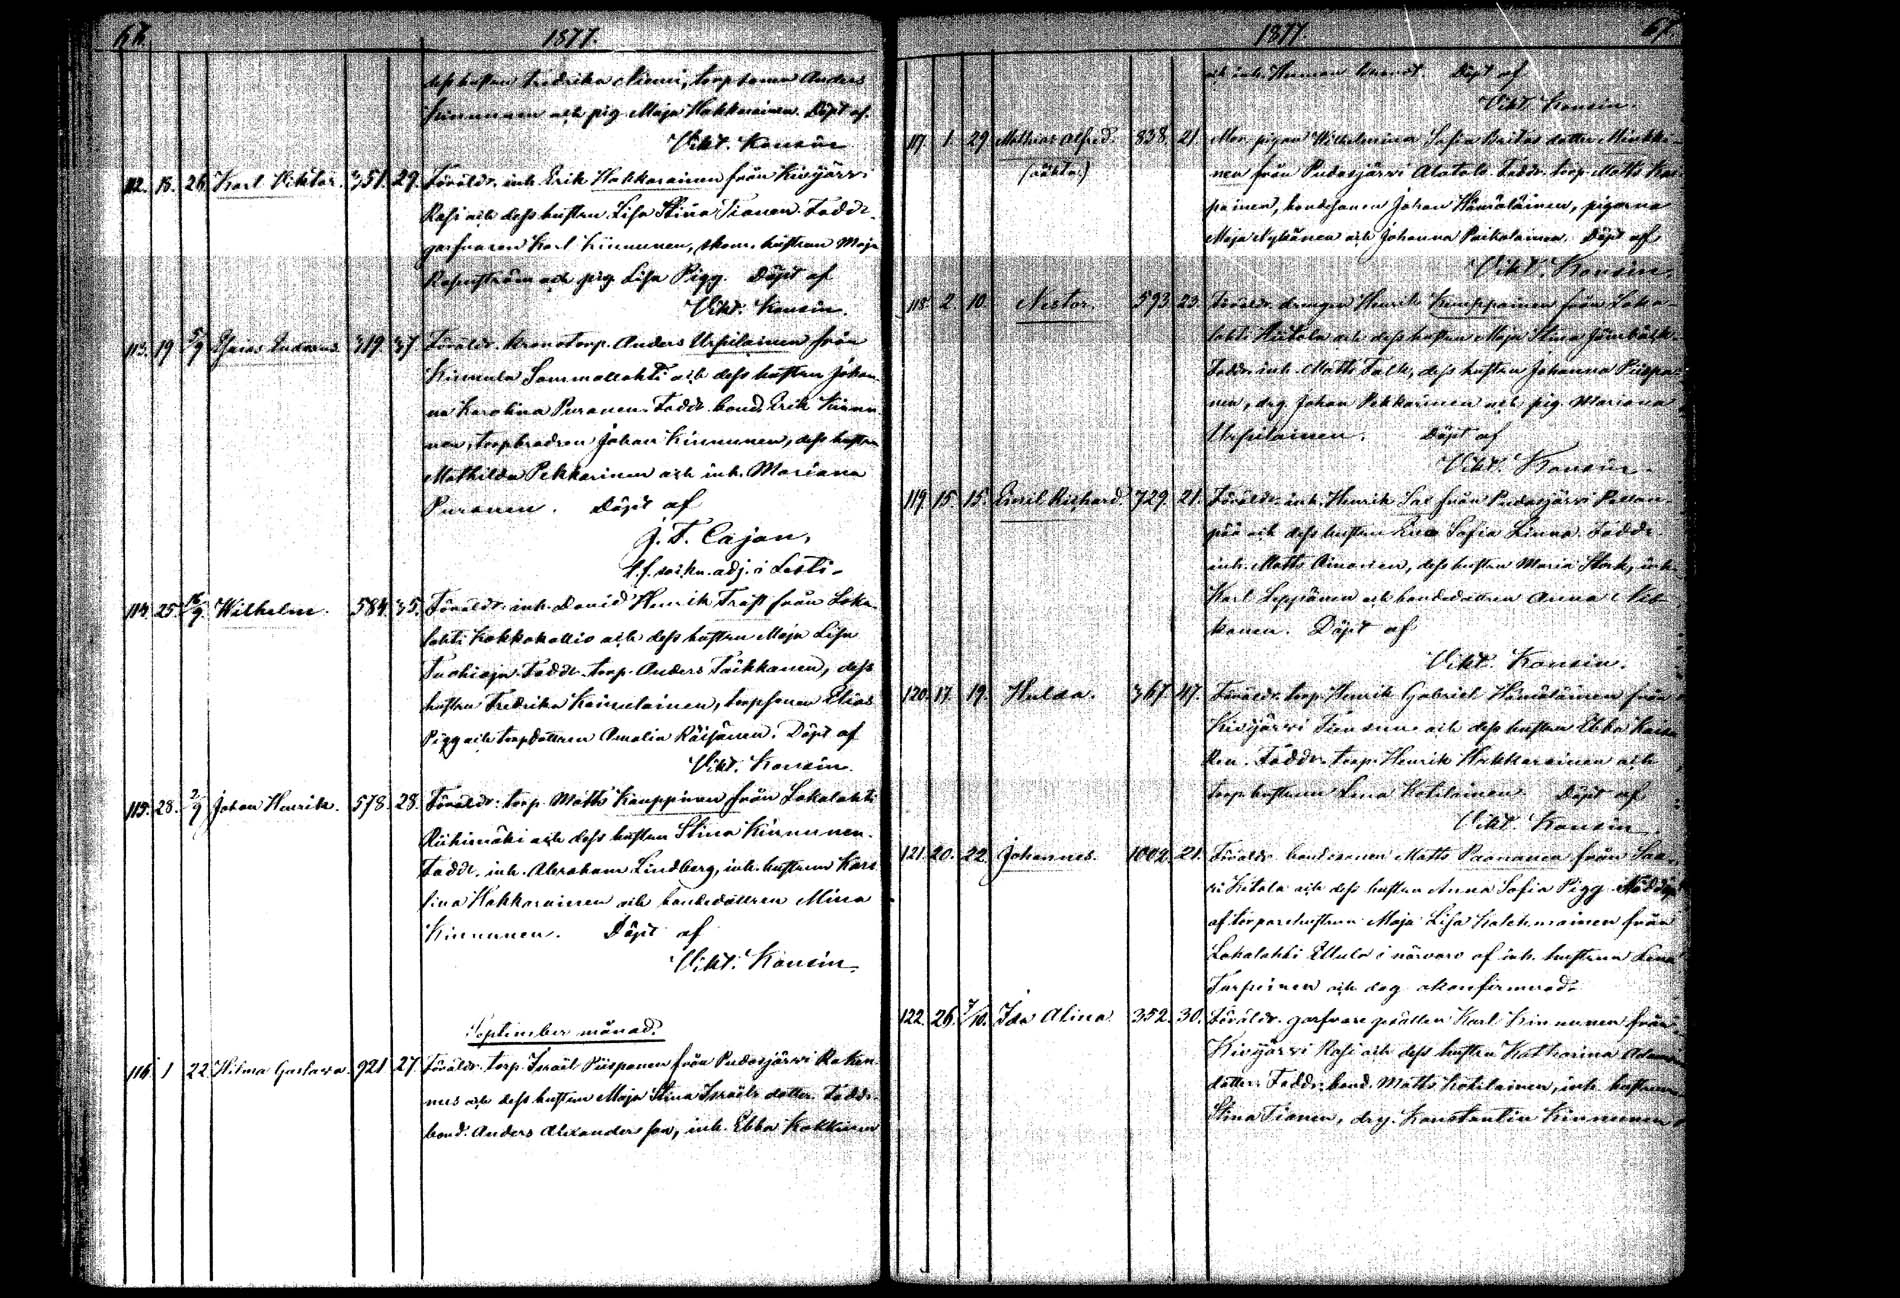 1877.
dess hustru Fredrika Niemi, torpsonen Anders
Kinnunen och pig. Maja Hakkarainen. Döpt af
Vikt. Konsin
112. 15. 26. Karl Viktor. 351. 29. Föräldr. inh. Erik Hakkarainen från Kivijärvi
Rasi och dess hustru Lisa Stina Tianen. Faddr.
garfvaren Karl Kinnunen, skom. hustrun Maja
och pig. Lisa Pigg. Döpt af
Vikt. Konsin.
113. 19 5/9 Esaias 319. 37 Föräldr. kronotorp. Anders Urpilainen från
Kinnula Sammallahti och dess hustru Johan-
na Karolina Puranen. Faddr. bond. Erik Kinnu-
nen, torpbrodren Johan Kinnunen, dess hustru
Mathilda Pekkarinen och inh. Mariana
Puranen. Döpt af
J. F. Cajan,
t.f. sockn. adj. i Lesti-
114. 25. 16/9 Wilhelm. 584. 35. Föräldr. inh. David Henrik Träst från Loka-
lahti Kokkokallio och dess hustru Maja Lisa
Faddr. torp. Anders Taikkanen, dess
hustru Fredrika Kainulainen, torpsonen Elias
Pigg och torpdottren Amalia Räisänen. Döpt af
Vikt. Konsin.
115. 28. 2/9 Johan Henrik. 578. 28. Föräldr. torp. Matts Kauppinen från Lokalahti
Riihimäki och dess hustru Stina Kinnunen.
Faddr. inh. Abraham Lindberg, inh. hustrun Karo-
lina Hakkarainen och bondedottren Mina
Kinnunen. Döpt af
Vikt. Konsin.
September månad.
116 1 22 Hilma Gustava. 921 27 Föräldr. torp. Israël Piispanen från Pudasjärvi Raken-
nus och dess hustru Maja Stina Israëls dotter. Faddr.
bond. Anders Alexanders son, inh. Ebba Kokkinen
1877. 67.
och inh. Herman Döpt af
Vikt. Konsin.
117. 1. 29 Mathias Alfred. 838. 21. Mor. pigan Wilhelmina Sofia Britas dotter Minkki-
(oäkta) nen från Pudasjärvi Alatalo. Faddr. torp. Matts Kau-
painen, bondesonen Johan Hämäläinen, pigorna
Maja Nykänen och Johanna Paikalainen. Döpt af
Vikt. Konsin.
118. 2. 10. Nestor. 593. 23. Föräldr. drängen Henrik Kauppainen från Loka-
lahti och dess hustru Maja Stina Jämbäck.
Faddr. inh. Matts Falk, dess hustru Johanna Piispa-
nen, drg. Johan Pekkarinen och pig. Mariana
Urpilainen. Döpt af
Vikt. Konsin.
119. 15. 15. Emil Richard. 729. 21. Föräldr. inh. Henrik Sax från Pudasjärvi
pää och dess hustru Eva Sofia Linna. Faddr.
inh. Matts Ainonen, dess hustru Maria Stork, inh.
Karl Leppänen och bondedottren Anna
kanen. Döpt af
Vikt. Konsin.
120. 17. 19. Hulda. 367. 47. Föräldr. torp. Henrik Gabriel Hämäläinen från
Kivijärvi Tiensuu och dess hustru Ebba Kaisa
Ren. Faddr. torp. Henrik Hakkarainen och
torp. hustrun Lena Kotilainen. Döpt af
Vikt. Konsin.
121. 20. 22. Johannes. 1002. 21. Föräldr. bondesonen Matts Paananen från Saa-
ri Kitola och dess hustru Anna Sofia Pigg. Nöddöpt
af torparehustrun Maja Lisa Kolehmainen från
Lokalahti Ellula i närvaro af inh. hustrun Lena
Turpeinen och dog okonfirmerad.
122. 26. 7/10. Ida Alina. 352. 30. Föräldr. garfvaregesällen Karl Kinnunen från
Kivijärvi Rasi och dess hustru Katharina Adams
dotter. Faddr. bond. Matts Kotilainen, inh. hustrun
Stina Tianen, drg. Konstantin Kinnunen